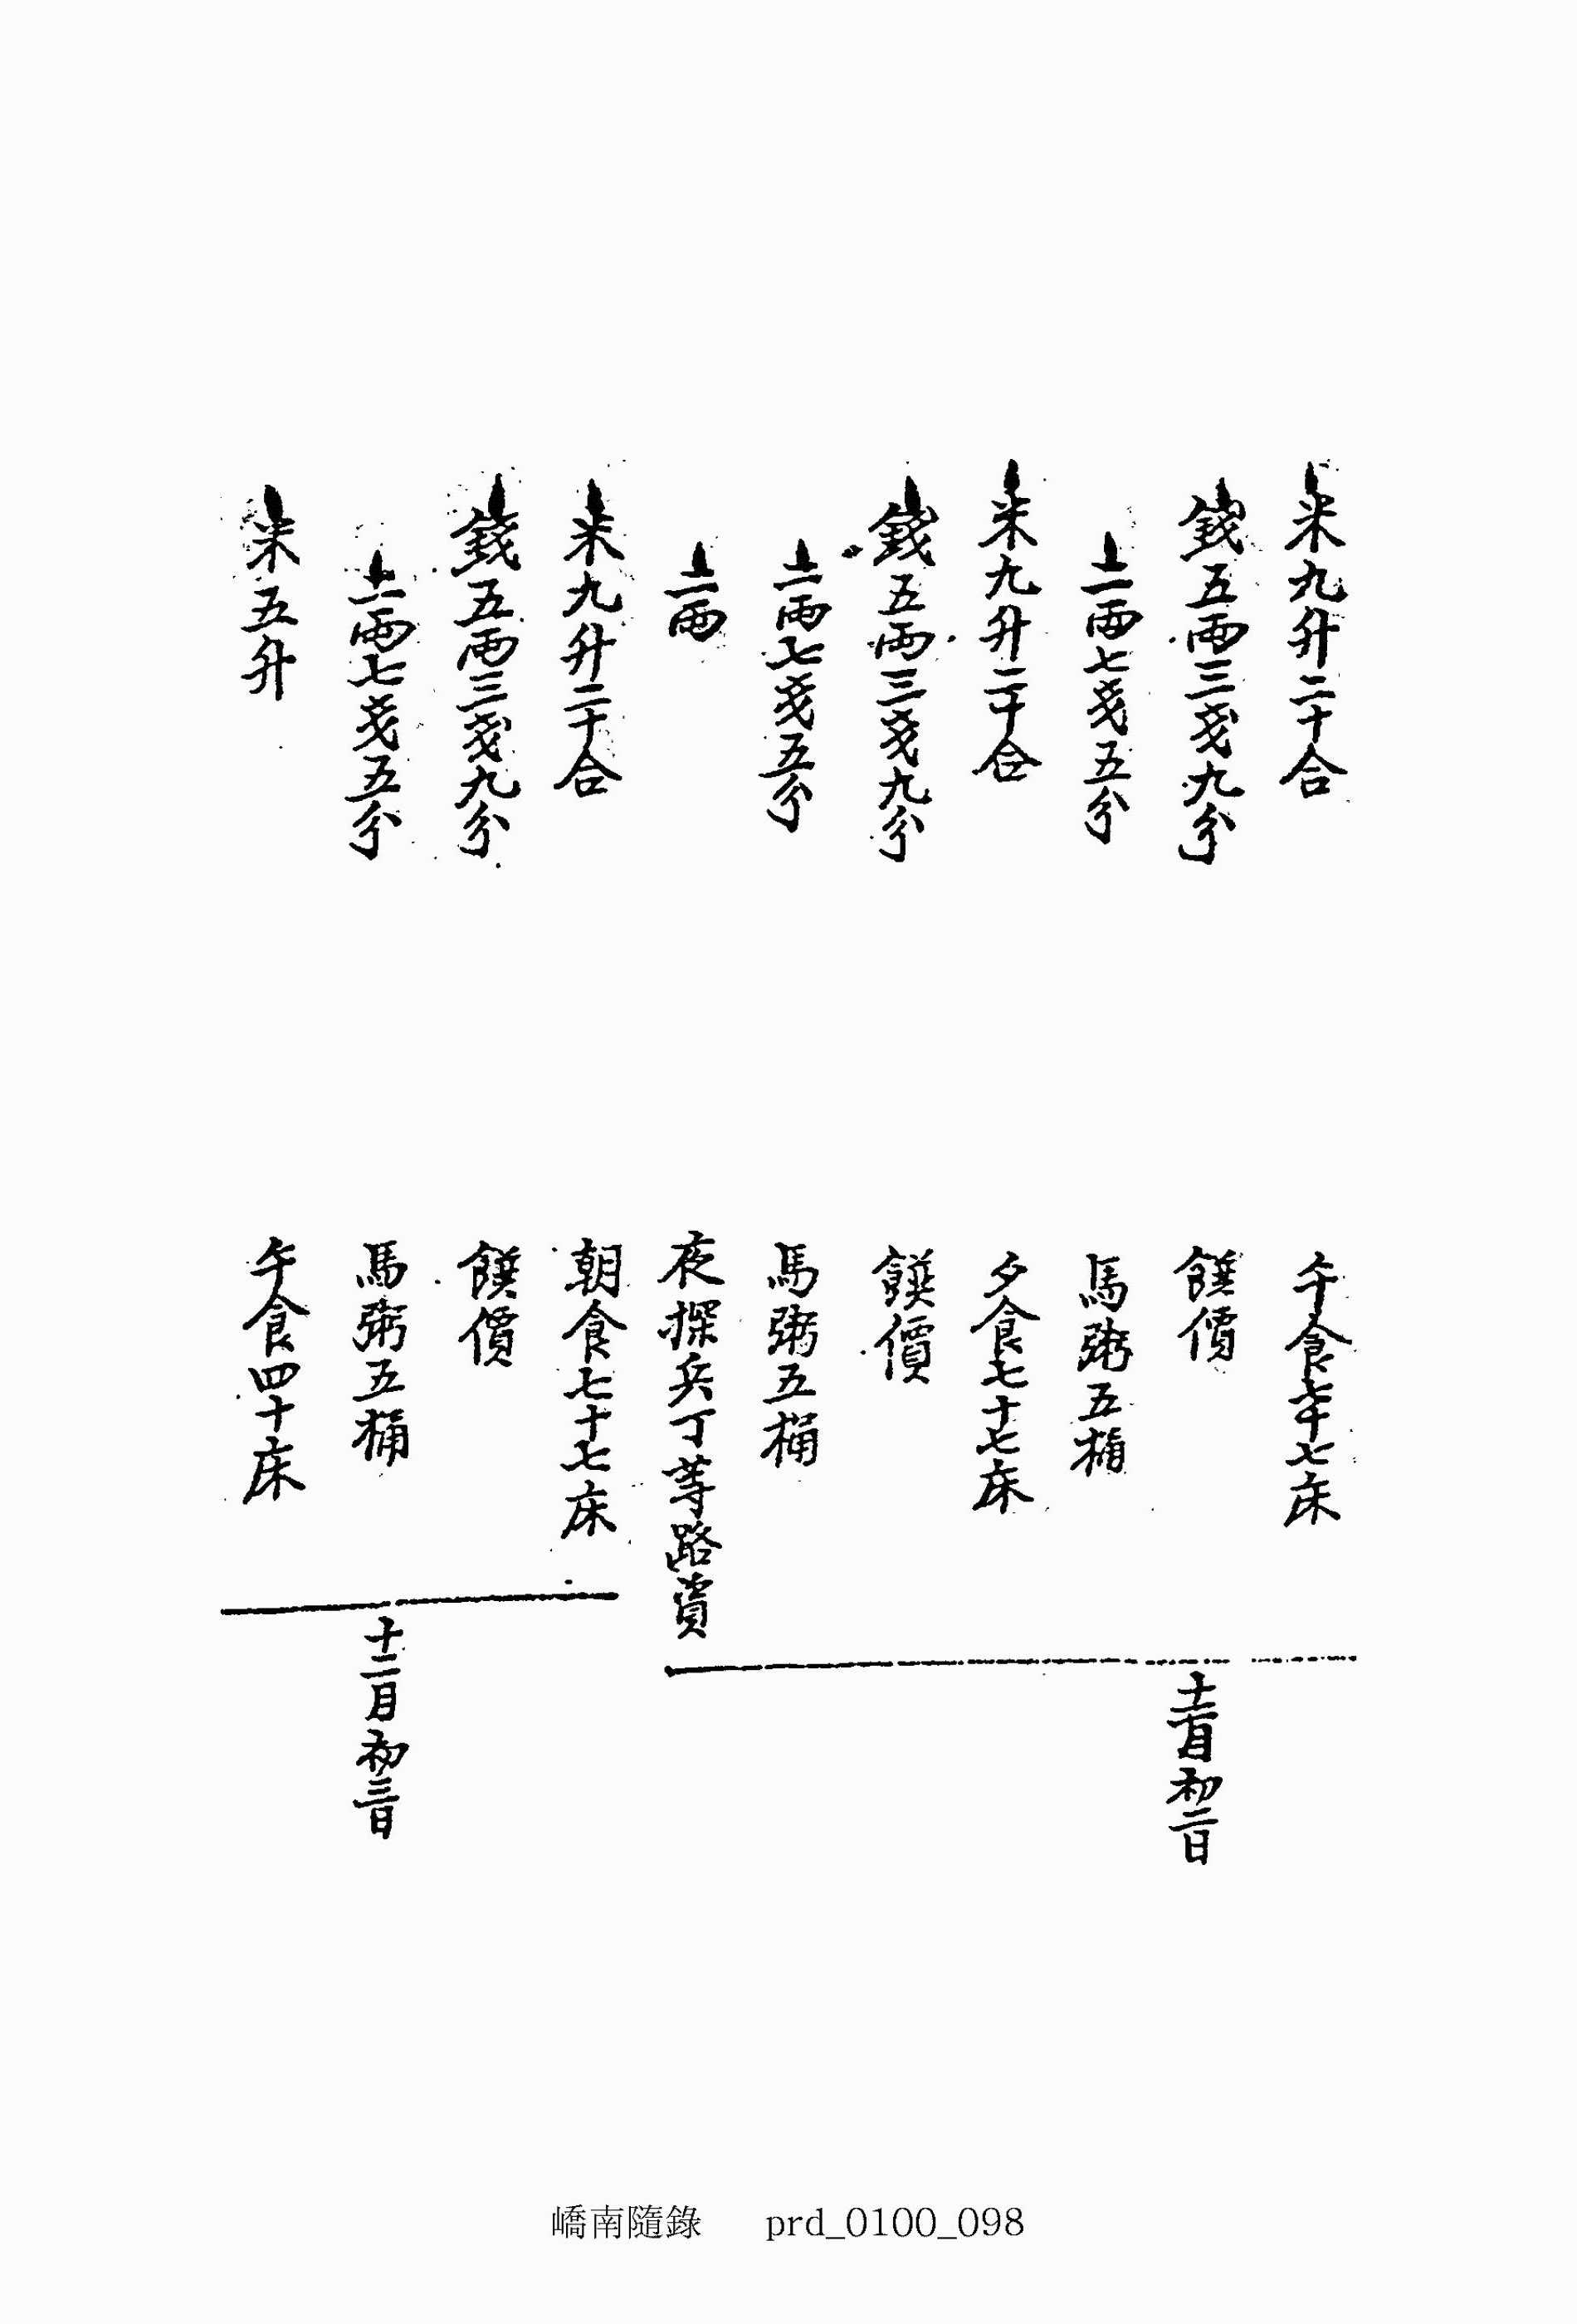 米九升二十合　午食七十七床
錢五兩三戔九分　饌價
二兩七戔五分　馬粥五桶
米九升二十合　夕食七十七床
錢五兩三戔九分　饌價
二兩七戔五分　馬粥五桶
二兩　夜探兵丁等路資
十二月初二日
米九升二十合　朝食七十七床
錢五兩三戔九分　饌價
二兩七戔五分　馬粥五桶
米五升　午食四十床
十二月初三日
嶠南隨錄 prd_0100_098